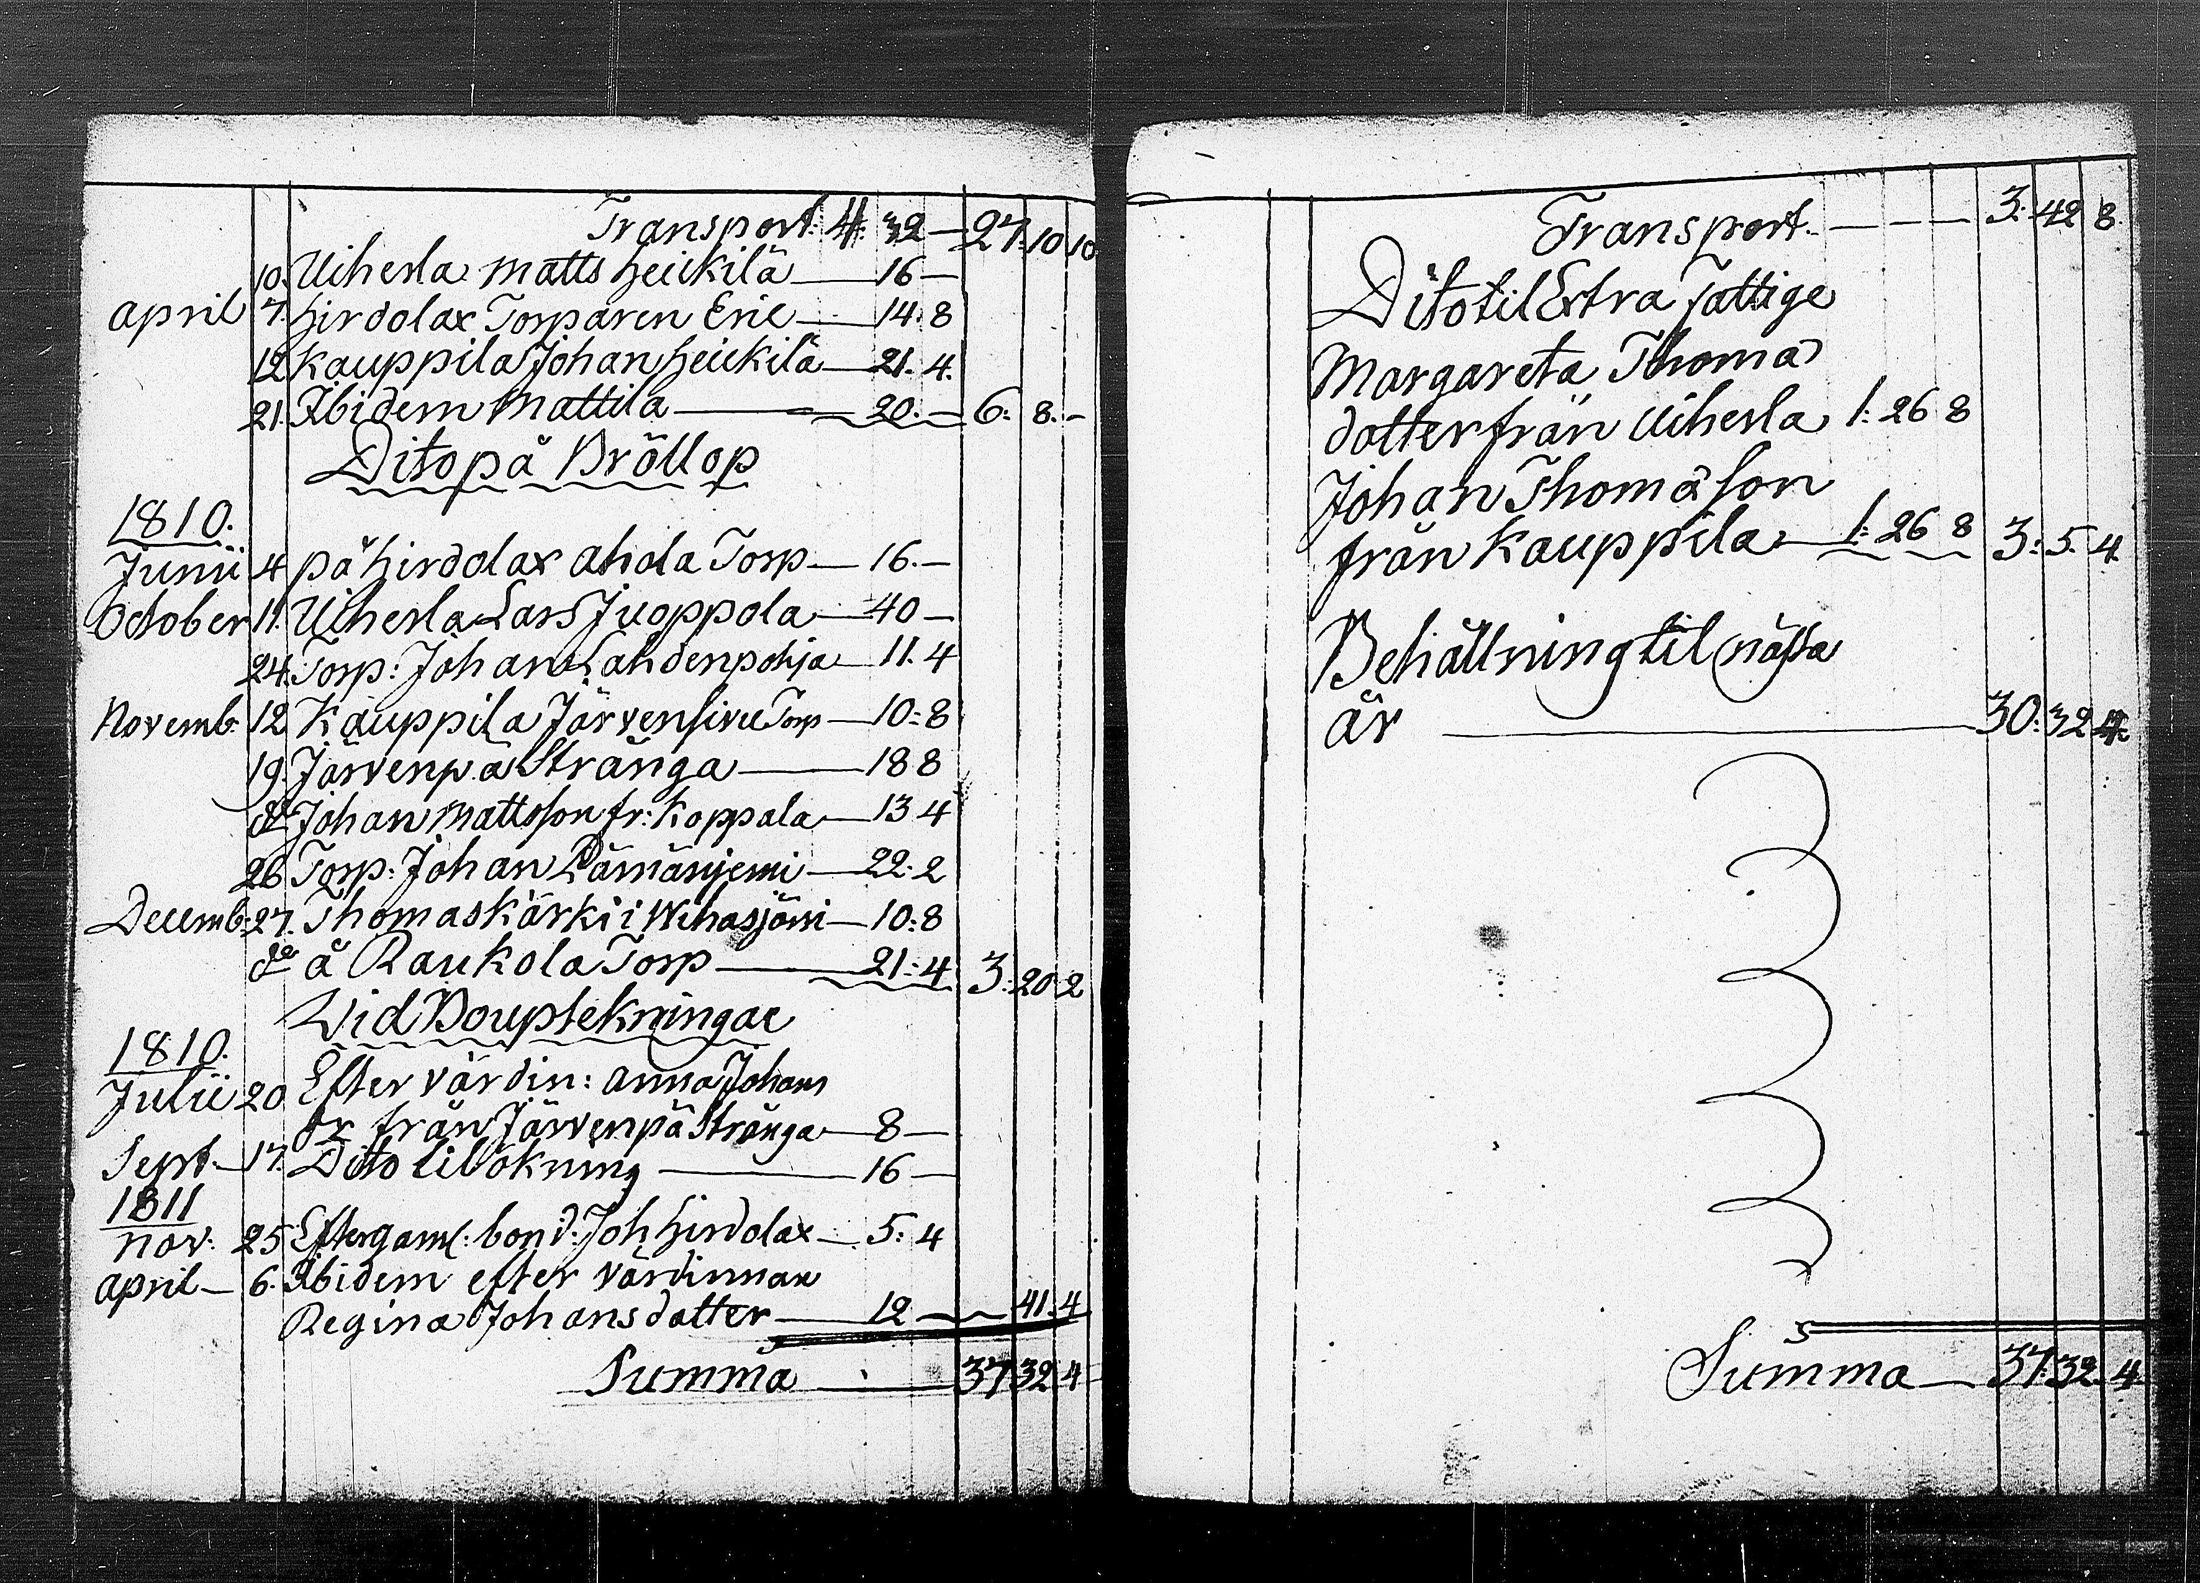 Transport. 4. 32 — 27. 10 10
10. Uiherla Matts Heickilä — 16 —
April 7. Hirdolax Torparen Eric — 14. 8
12 Kauppila Johan Heickilä — 21. 4.
21. Ibidem Mattila — 20. — 6. 8. -
Dito på Bröllop
1810.
Junii 4 på Hirdolax Ahola Torp — 16. —
October 11. Uiherla Lars Juoppola — 40 —
24. Torp: Johan Lahdenpohja — 11. 4
Novemb: 12 Kauppila Järvensivu Torp — 10: 8
19. Järvenpä Stränga — 18 8
do Johan Mattsson fr: Koppala — 13 4
26 Torp: Johan Lämäniemi — 22: 2
Decemb: 27. Thomas Kärki i Wehasjärvi — 10: 8
do å Raukola Torp — 21: 4 3: 20 2
Vid Bouptekningar
1810.
Julii 20 Efter värdin: Anna Johans
dr från Järvenpä Stränga — 8 —
Sept. 17. Dito tilökning — 16 —
1811
nov: 25 Efter gaml: bond: Joh Hirdolax — 5: 4
April — 6. Ibidem efter värdinnan
Regina Johansdotter — 12 — 41. 4
Summa — 37 32 4
Transport. — — — 3: 42 8.
Dito til Extra Fattige
Margareta Thomas
dotter från Uiherla 1: 26 8
Johan Thomasson
från Kauppila — 1: 26 8 3: 5. 4
Behållning til nästa
år — 30: 32 4.
Summa — 37: 32. 4